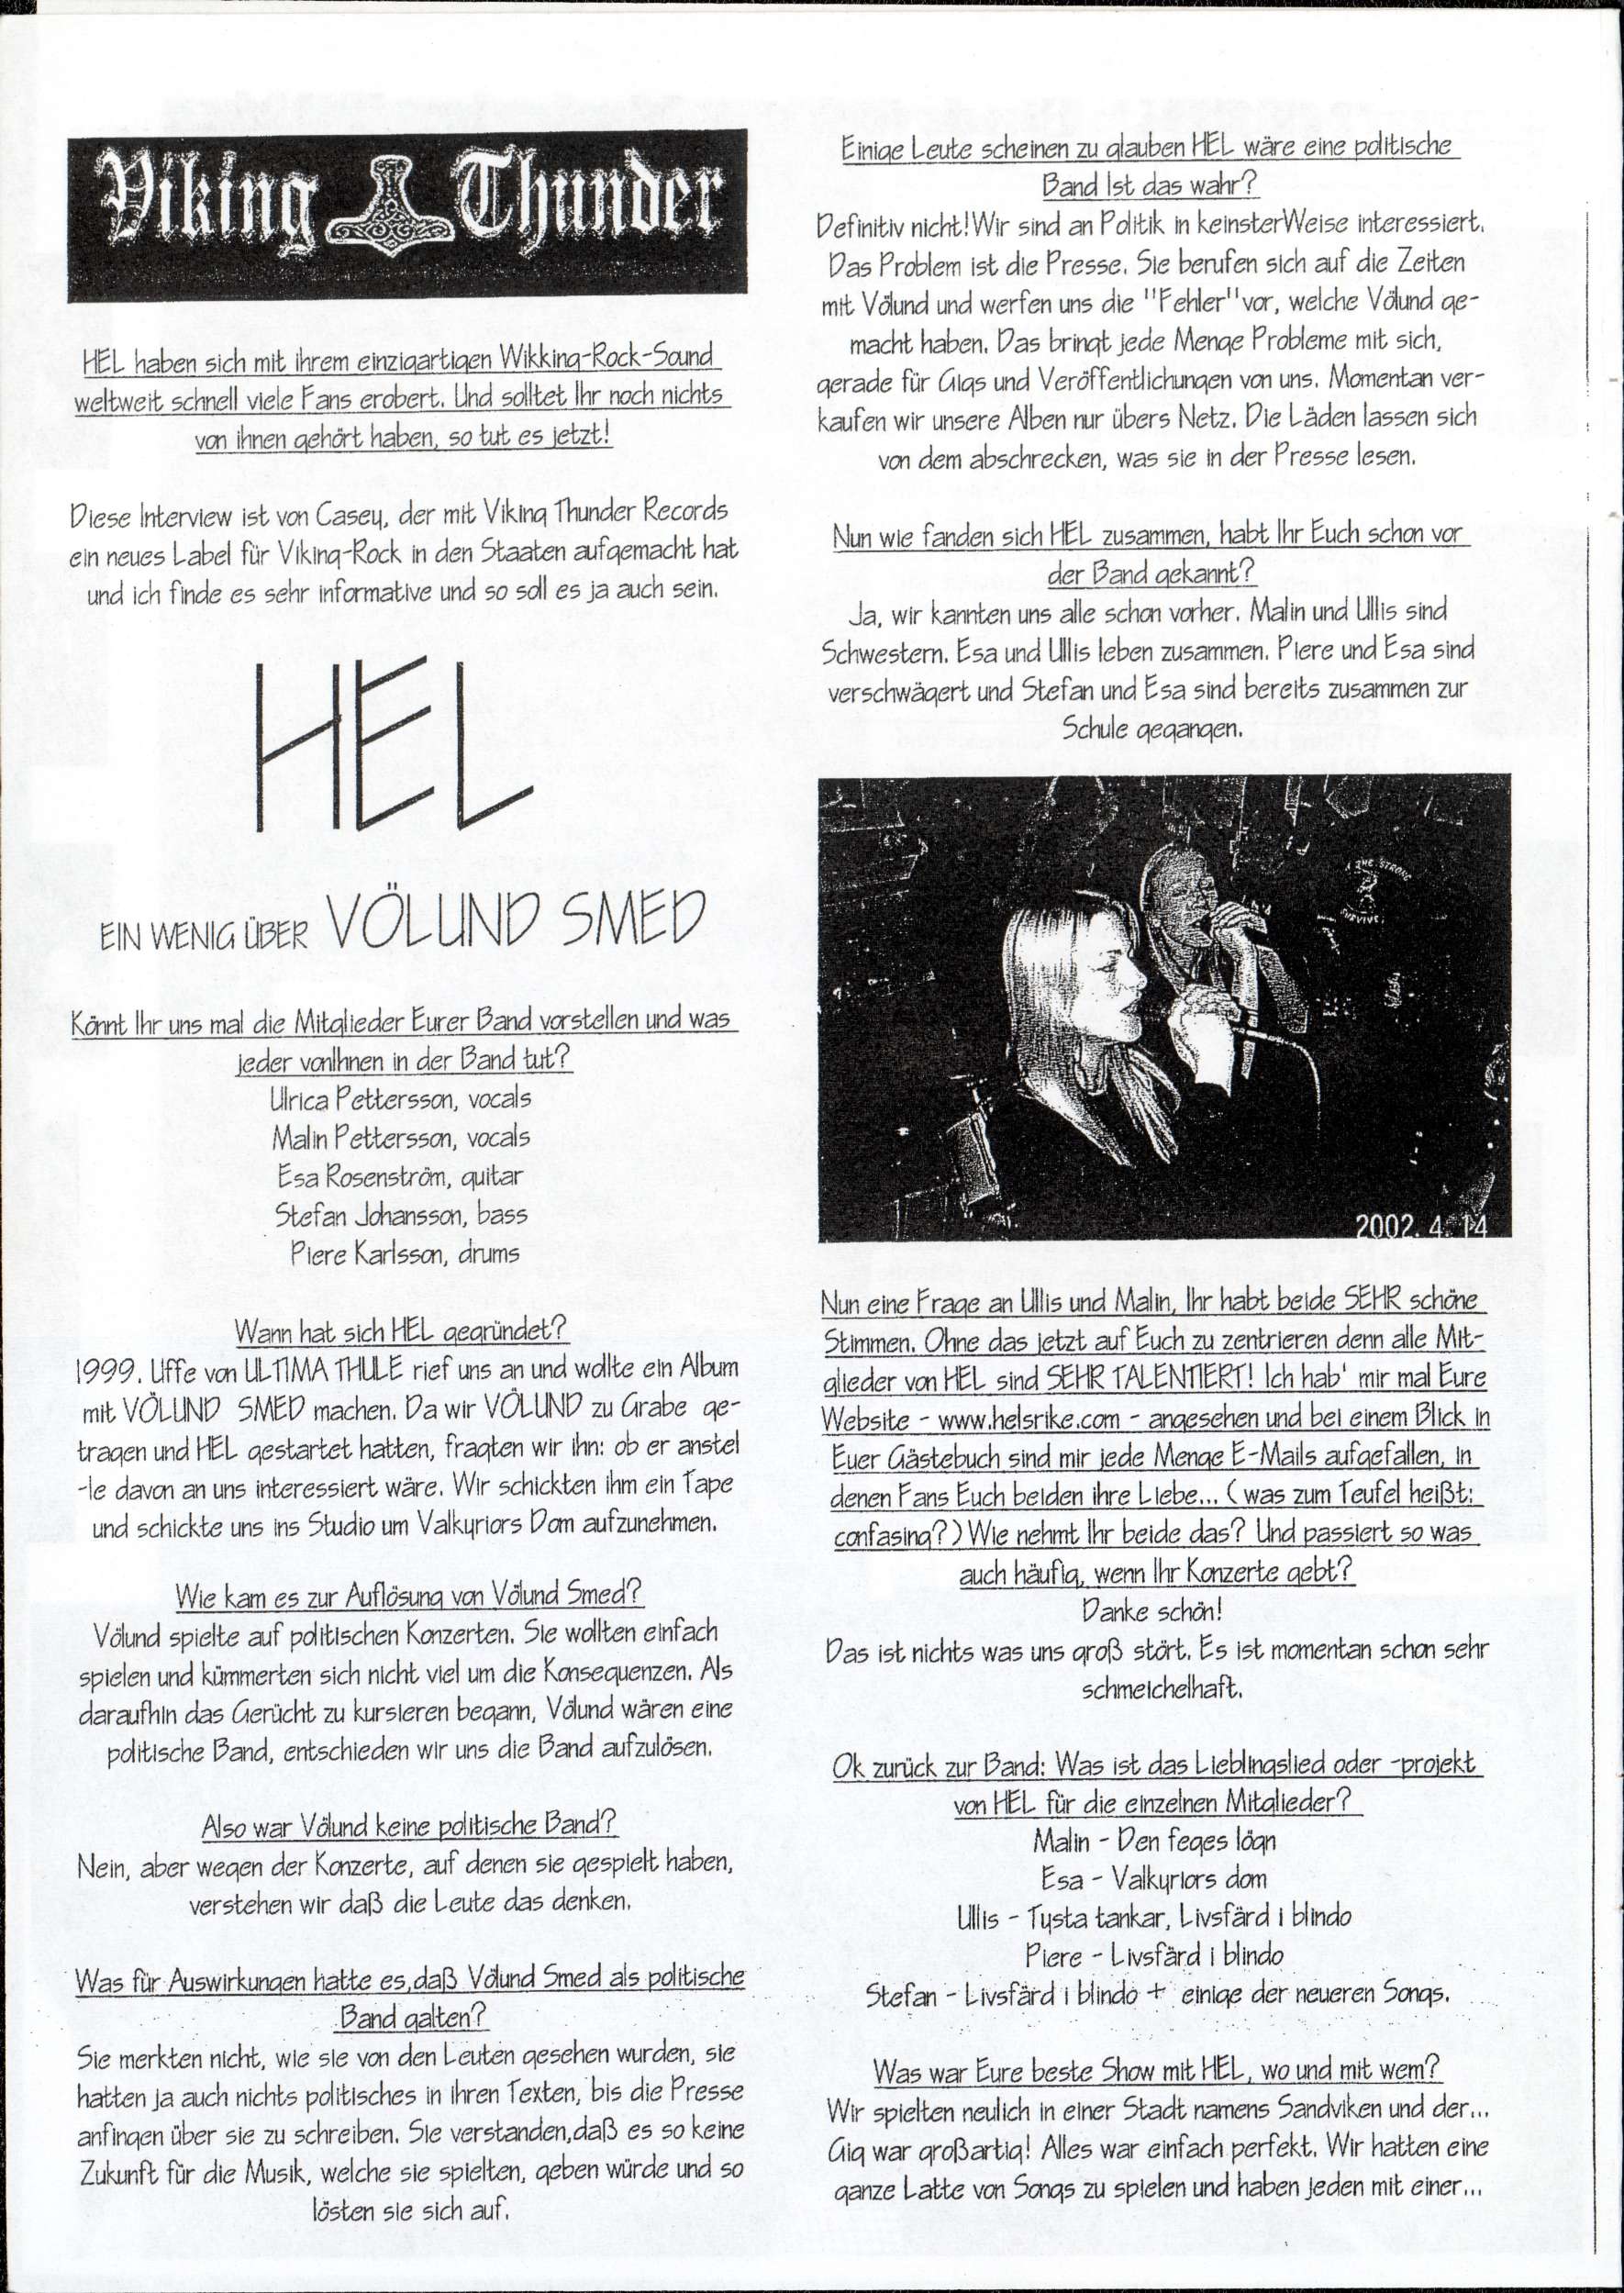 Viking Thunder
HEL haben sich mit ihrem einzigartigen Wikking-Rock-Sound
weltweit schnell viele Fans erobert. Und solltet Ihr noch nichts
von ihnen gehört haben, so tut es jetzt!
Diese Interview ist von Casey, der mit Viking Thunder Records
ein neues Label für Viking-Rock in den Staaten aufgemacht hat
und ich finde es sehr informative und so soll es ja auch sein.
HEL
EIN WENIG ÜBER VÖLUND SMED
Könnt Ihr uns mal die Mitglieder Eurer Band vorstellen und was
jeder vonIhnen in der Band tut?
Ulrica Pettersson, vocals
Malin Pettersson, vocals
Esa Rosenström, guitar
Stefan Johansson, bass
Piere Karlsson, drums
Wann hat sich HEL gegründet?
1999. Uffe von ULTIMA THULE rief uns an und wollte ein Album
mit VÖLUND SMED machen. Da wir VÖLUND zu Grabe ge-
tragen und HEL gestartet hatten, fragten wir ihn: ob er anstel
-le davon an uns interessiert wäre. Wir schickten ihm ein Tape
und schickte uns ins Studio um Valkyriors Dom aufzunehmen.
Wie kam es zur Auflösung von Völund Smed?
Völund spielte auf politischen Konzerten. Sie wollten einfach
spielen und kümmerten sich nicht viel um die Konsequenzen. Als
daraufhin das Gerücht zu kursieren begann, Völund wären eine
politische Band, entschieden wir uns die Band aufzulösen.
Also war Völund keine politische Band?
Nein, aber wegen der Konzerte, auf denen sie gespielt haben,
verstehen wir daß die Leute das denken.
Was für Auswirkungen hatte es,daß Völund Smed als politische
Band galten?
Sie merkten nicht, wie sie von den Leuten gesehen wurden, sie
hatten ja auch nichts politisches in ihren Texten, bis die Presse
anfingen über sie zu schreiben. Sie verstanden,daß es so keine
Zukunft für die Musik, welche sie spielten, geben würde und so
lösten sie sich auf.
Einige Leute scheinen zu glauben HEL wäre eine politische
Band Ist das wahr?
Definitiv nicht!Wir sind an Politik in keinsterWeise interessiert.
Das Problem ist die Presse. Sie berufen sich auf die Zeiten
mit Völund und werfen uns die "Fehler"vor, welche Völund ge-
macht haben. Das bringt jede Menge Probleme mit sich,
gerade für Gigs und Veröffentlichungen von uns. Momentan ver-
kaufen wir unsere Alben nur übers Netz. Die Läden lassen sich
von dem abschrecken, was sie in der Presse lesen.
Nun wie fanden sich HEL zusammen, habt Ihr Euch schon vor
der Band gekannt?
Ja, wir kannten uns alle schon vorher. Malin und Ullis sind
Schwestern. Esa und Ullis leben zusammen. Piere und Esa sind
verschwägert und Stefan und Esa sind bereits zusammen zur
Schule gegangen.
THE STRONG
SURVIVE
2002. 4. 14
Nun eine Frage an Ullis und Malin, Ihr habt beide SEHR schöne
Stimmen. Ohne das jetzt auf Euch zu zentrieren denn alle Mit-
glieder von HEL sind SEHR TALENTIERT! Ich hab' mir mal Eure
Website - www.helsrike.com - angesehen und bei einem Blick in
Euer Gästebuch sind mir jede Menge E-Mails aufgefallen, in
denen Fans Euch beiden ihre Liebe... ( was zum Teufel heißt:
confasing? ) Wie nehmt Ihr beide das? Und passiert so was
auch häufig, wenn Ihr Konzerte gebt?
Danke schön!
Das ist nichts was uns groß stört. Es ist momentan schon sehr
schmeichelhaft.
Ok zurück zur Band: Was ist das Lieblingslied oder -projekt
von HEL für die einzelnen Mitglieder?
Malin - Den feges lögn
Esa - Valkyriors dom
Ullis - Tysta tankar, Livsfärd i blindo
Piere - Livsfärd i blindo
Stefan - Livsfärd i blindo + einige der neueren Songs.
Was war Eure beste Show mit HEL, wo und mit wem?
Wir spielten neulich in einer Stadt namens Sandviken und der...
Gig war großartig! Alles war einfach perfekt. Wir hatten eine
ganze Latte von Songs zu spielen und haben jeden mit einer...